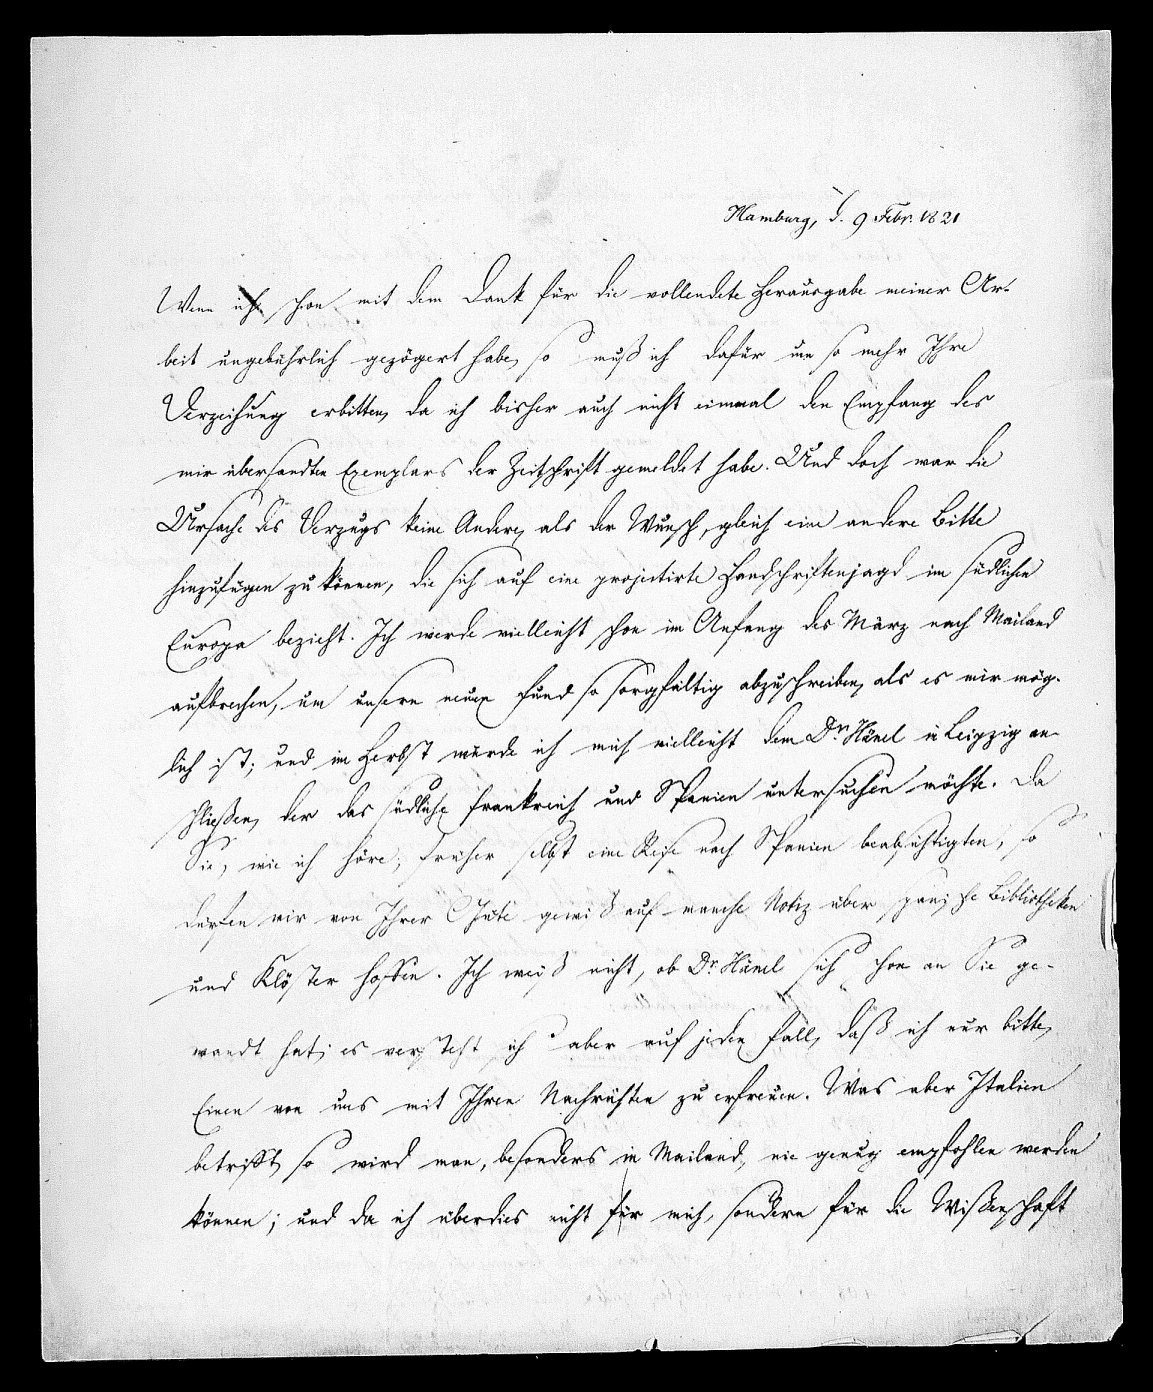 Hamburg, d. 9 Febr. 1821
Wenn ich schon mit dem Dank für die vollendete Herausgabe meiner Ar-
beit ungebührlich gezögert habe, so muß ich dafür um so mehr Ihre
Verzeihung erbitten, da ich bisher auch nicht einmal den Empfang des
mir übersandten Exemplars der Zeitschrift gemeldet habe. Und doch war die
Ursache des Verzugs keine Andere, als der Wunsch, gleich eine andere Bitte
hinzufügen zu können, die sich auf eine projectirte Handschriftenjagd im südlichen
Europa bezieht. Ich werde vielleicht schon im Anfang des März nach Mailand
aufbrechen, um unsern neuen Fund so sorgfältig abzuschreiben, als es mir mög-
lich ist; und im Herbst würde ich mich vielleicht dem Dr. Hänel in Leipzig an-
schließen, der das südliche Frankreich und Spanien untersuchen möchte. Da
Sie, wie ich höre, früher selbst eine Reise nach Spanien beabsichtigten, so
dürfen wir von Ihrer Güte gewiß auf manche Notiz über spanische Bibliotheken
und Klöster hoffen. Ich weiß nicht, ob Dr. Hänel sich schon an Sie ge-
wandt hat; es versteht sich aber auf jeden Fall, daß ich nur bitte,
Einen von uns mit Ihren Nachrichten zu erfreuen. Was aber Italien
betrifft, so wird man, besonders in Mailand, nie genug empfohlen werden
können; und da ich überdies nicht für mich, sondern für die Wissenschaft